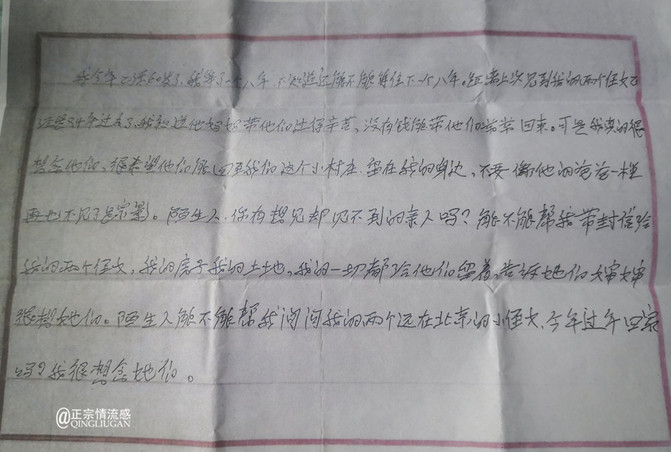 我今年已快80岁了,我等了一个八年,不知道还能不能等住下一个八年。距离上次见到我的两个侄女已
经是好多年过去了,我知道他妈妈带他们也很辛苦,没有钱能带他们常常回来。可是我真的很
想念他们,很希望他们能回到我们这个小村庄,留在我的身边,不要像他的爸爸一样
再也不见了。陌生人,你有想见却见不到的亲人吗?能不能帮我带封信给
我的两个侄女,我的房子我的土地,我的一切都给他们留着,告诉她们大爷大爷
很想她们。陌生人能不能帮我问问我的两个远在北京的小侄女,今年过年回家
吗?我很想念她们。
@正宗情流感
QINGLIUGAN